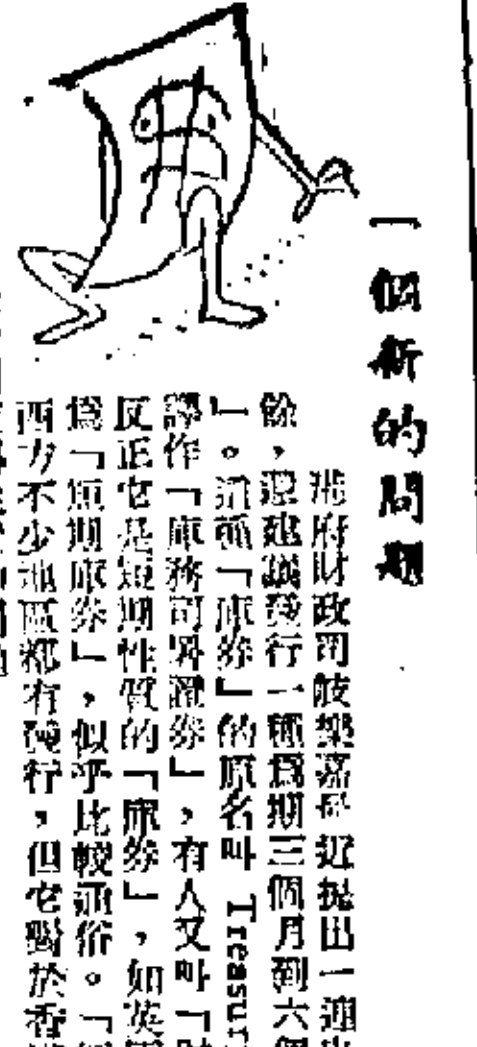 一個新的問題
港府財政司岐樂嘉最近提出一連
餘，還建議發行一種爲期三個月到六個
」。這種「庫券」的原名叫 Treasur
譯作「庫務司昇   券」，有人又叫「
反正它是短期性質的「庫券」，如英
爲「短期庫券」，似乎比較通俗。「
西方不少地區都有發行，但它對於香